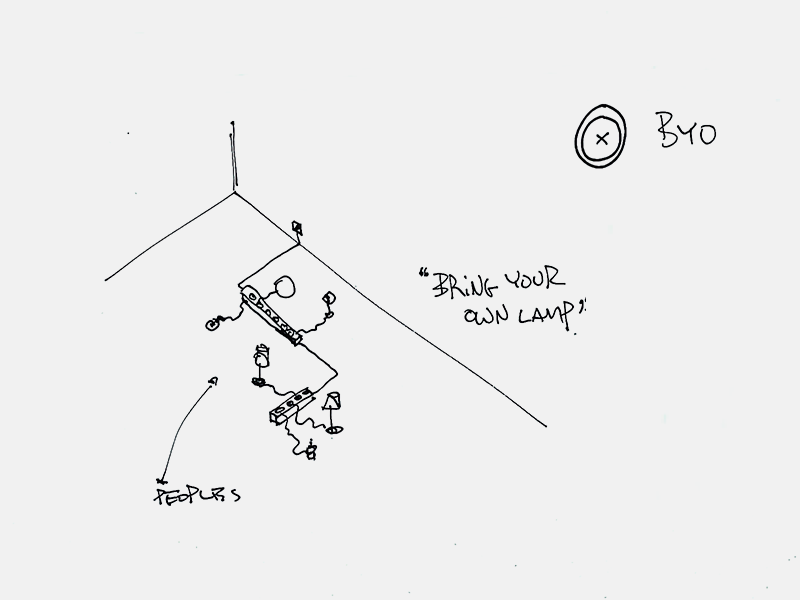 BYO
"BRING YOUR
OWN LAMP"
PEOPLES